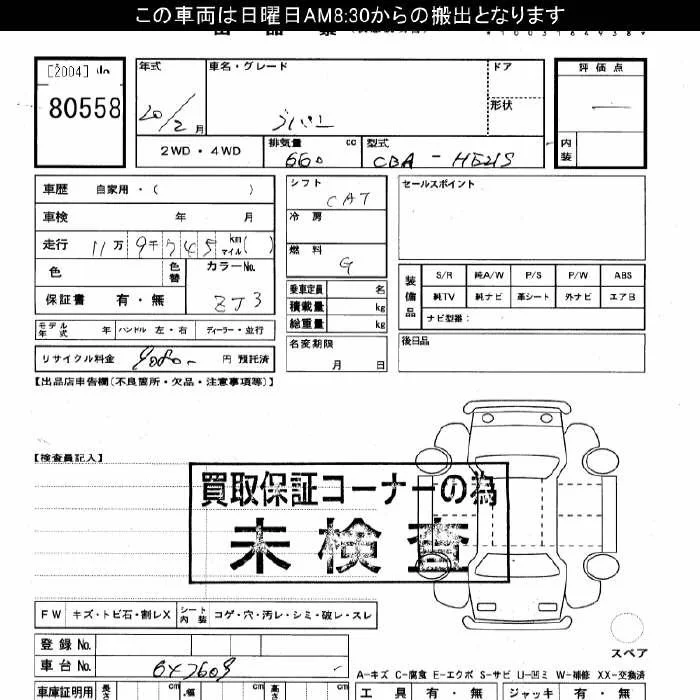 この車両は日曜日AM8:30からの搬出となります
[2004]
80558
年式
20/2月
車名・グレード
ラパン
ドア
形状
評価点
内装
2WD・4WD
排気量 cc
660
型式
CBA - HE21S
車歴 自家用・( )
車検 年 月
走行 11万9千745 km マイル( )
色 色替
カラーNo. ZJ3
保証書 有・無
モデル年式 年 ハンドル 左・右 ディーラー・並行
リサイクル料金 円 預託済
シフト CAT
冷房
燃料 G
乗車定員 名
積載量 kg
総重量 kg
名変期限
月 日
セールスポイント
装備品
S/R 純A/W P/S P/W ABS
純TV 純ナビ 革シート 外ナビ エアB
ナビ型番:
後日品
【出品店申告欄(不良箇所・欠品・注意事項等)】
【検査員記入】
買取保証コーナーの為
未検査
FW キズ・トビ石・割レX シート内装 コゲ・穴・汚レ・シミ・破レ・スレ
スペア
登録No.
車台No.
A-キズ C-腐食 E-エクボ S-サビ U-凹ミ W-補修 XX-交換済
車庫証明用 長さ cm 幅 cm 高さ cm
工具 有・無 ジャッキ 有・無